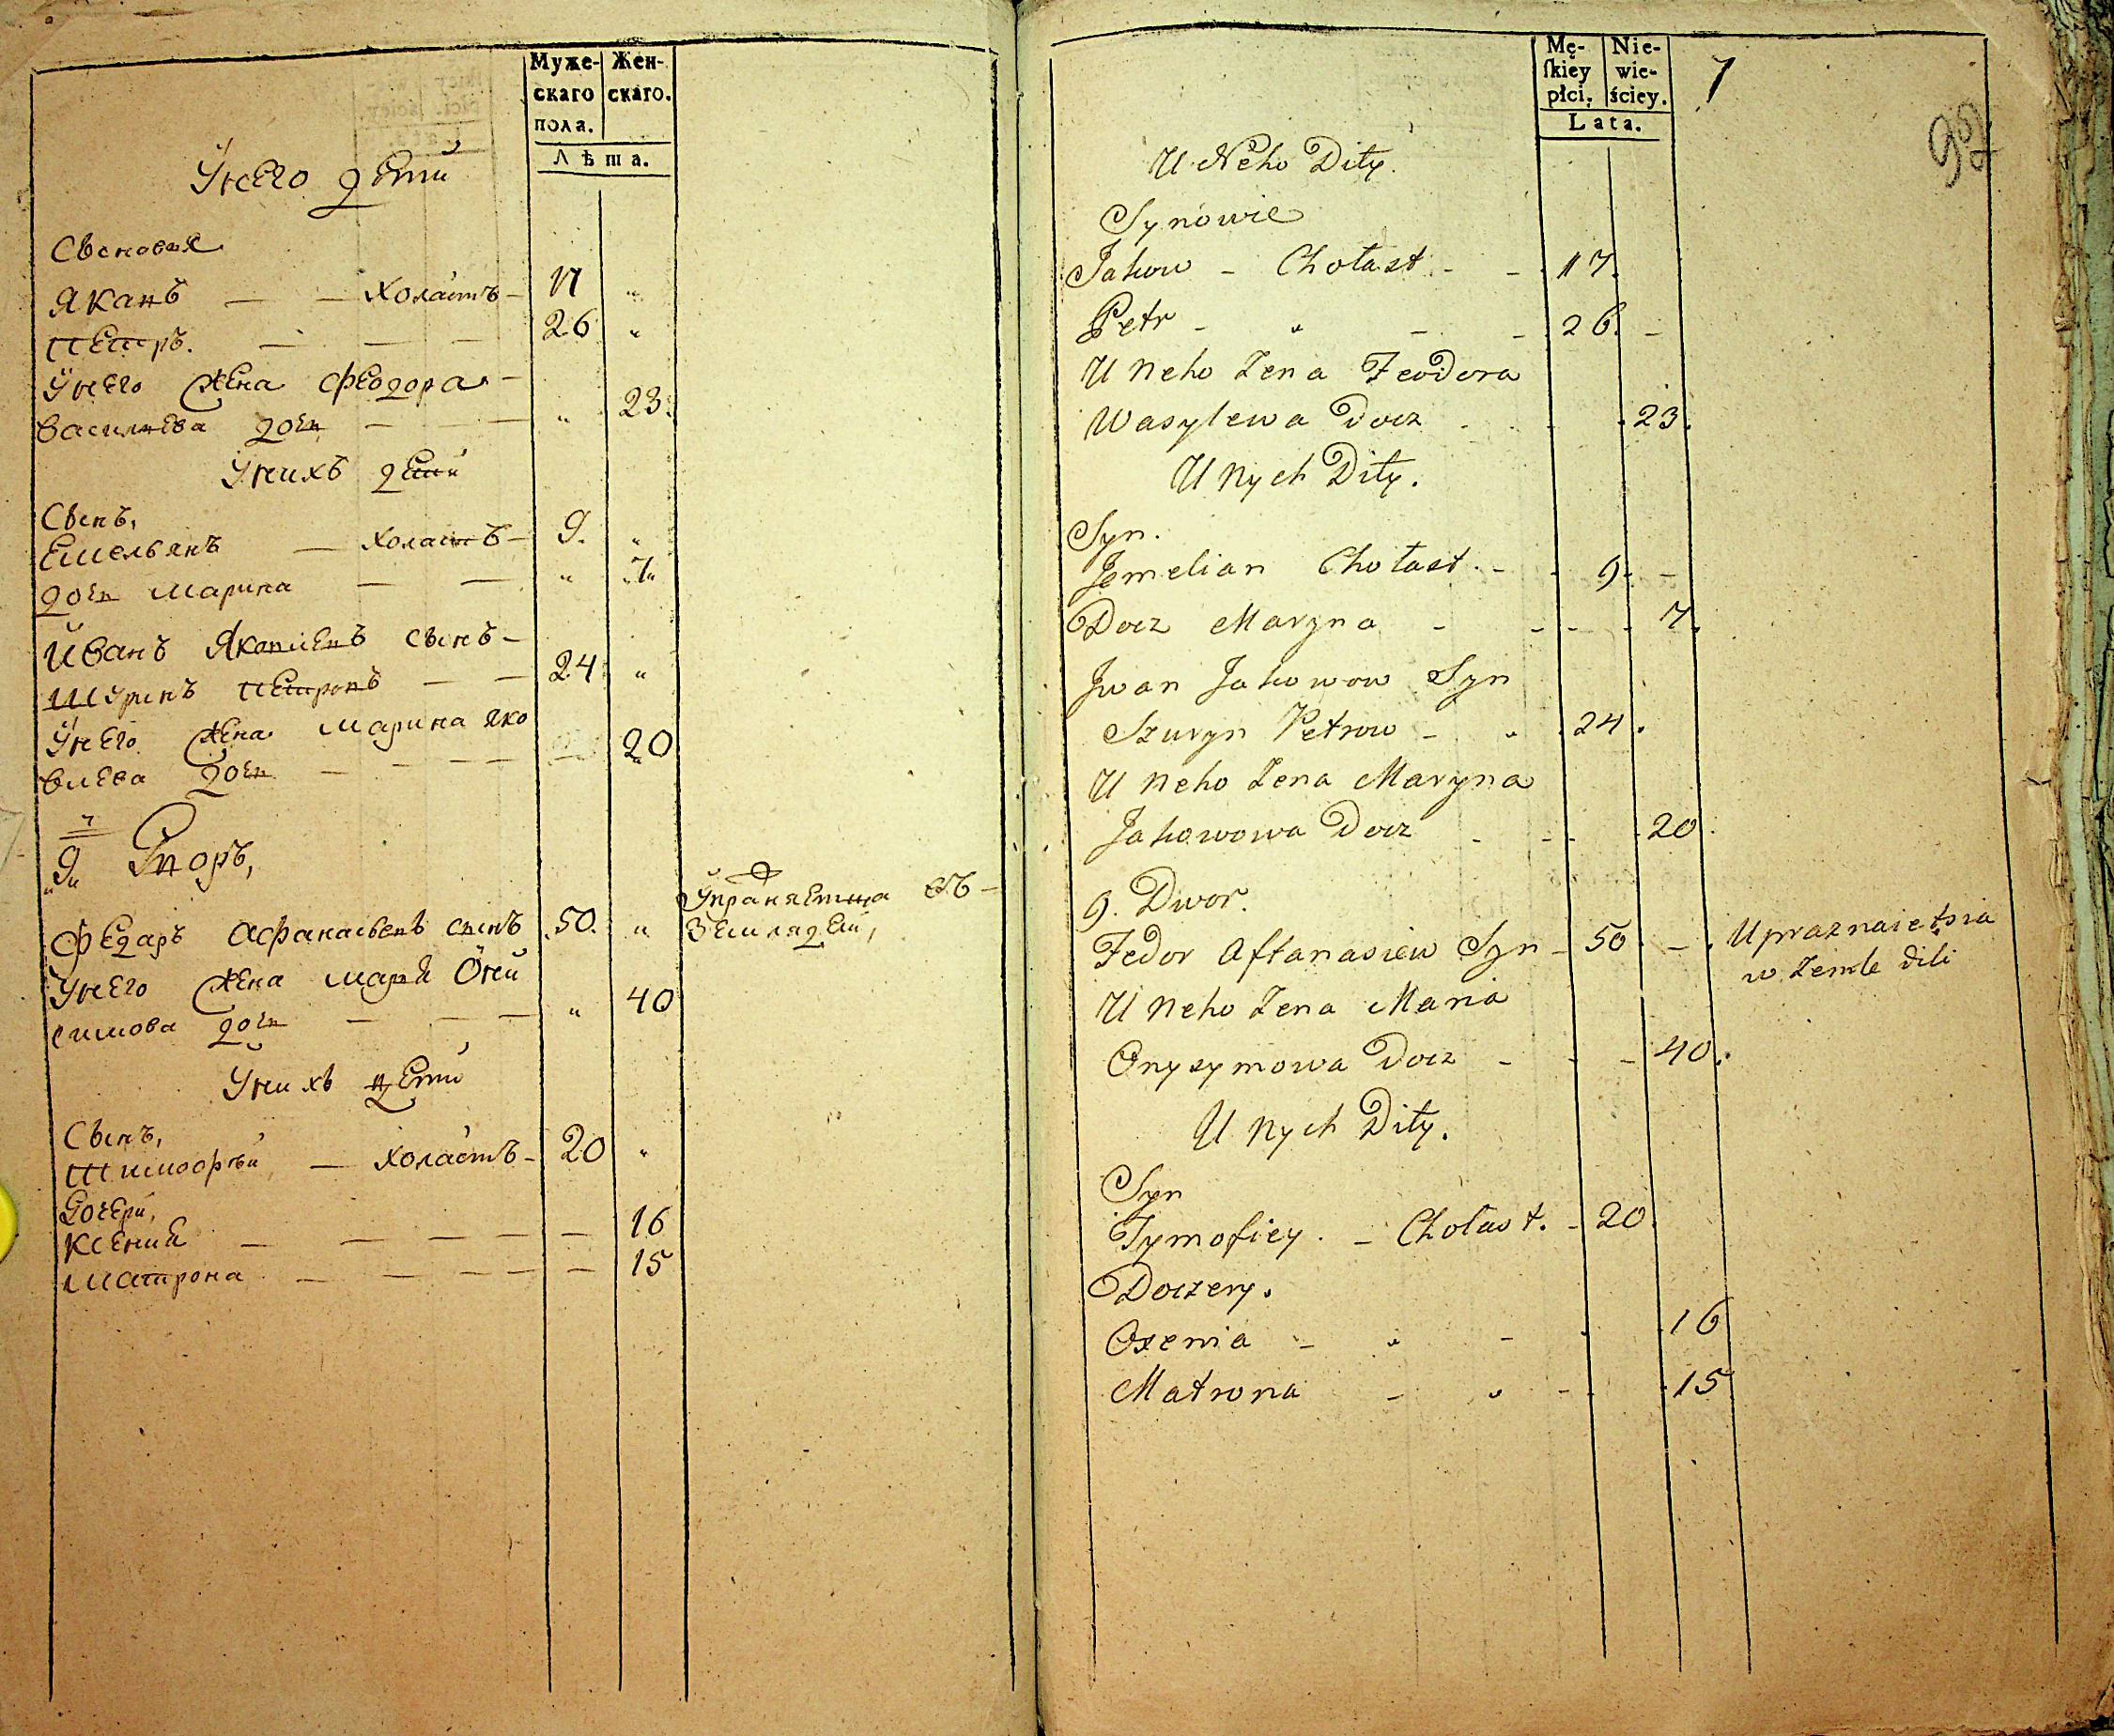 Муже-
скаго
пола.
Жен-
скаго.
Лѣта.
У него дети
Сынове
Якавъ — — Холастъ — 17 "
Петръ. — — — 26 "
У него жена Феодора —
Василиева дочь — — — " 23.
У нихъ дети
Сынъ,
Емельянъ — Холастъ — 9. "
дочь Марина — — " 7
Иванъ Яковлевъ сынъ —
Шуринъ Петровъ — — 24 "
У него жена Марина Яко
влева дочь — — — — 20
9 Дворъ,
Федаръ Афанасьевъ сынъ 50. " Упражняетца въ —
Земляделий,
У него жена Мария Они
симова дочь — — — " 40
У нихъ дети
Сынъ,
Тимофѣй — Холастъ — 20 "
Дочери,
Ксения — — — — — 16
Матрона — — — — — 15
Mę-
ſkiey
płci.
Nie-
wie-
ściey.
Lata.
7
U Neho Dity.
Synowie
Jakow - Chołast - - 17.
Petr - " - - 26. -
U Neho Zena Feodora
Wasylewa Docz . . . 23.
U Nych Dity.
Syn.
Jemelian Chołast. - - 9. -
Docz Maryna - - - - 7.
Jwan Jakowow Syn
Szuryn Petrow - " 24.
U Neho Zena Maryna
Jakowowa Docz - - - 20.
9. Dwor.
Fedor Aftanasiew Syn - 50 - . Upraznaietsia
w Zemle dili
U Neho Zena Maria
Onysymowa Docz - - - 40.
U Nych Dity.
Syn
Tymofiey. - Chołast. - 20.
Doczery.
Oxenia - " - . 16
Matrona - " - . 15